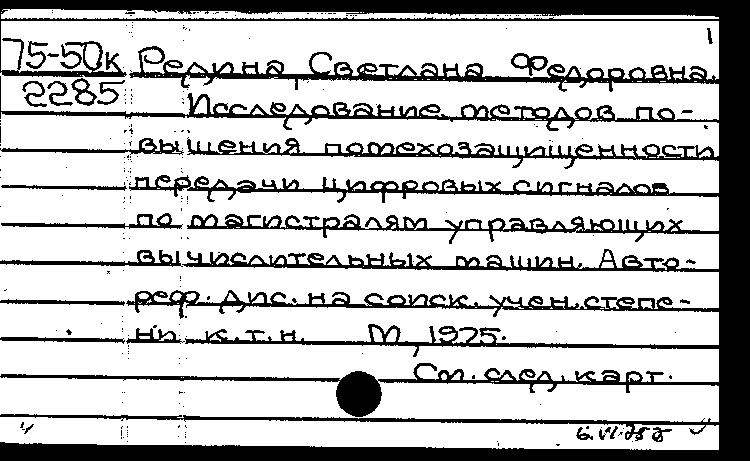 1
75-50к Редина, Светлана Федоровна.
2285 Исследование методов по-
вышения помехозащищенности
передачи цифровых сигналов
по магистралям управляющих
вычислительных машин. Авто-
реф. дис. на соиск. учен. степе-
ни к.т.н. М, 1975.
См. след. карт.
6.VI.75